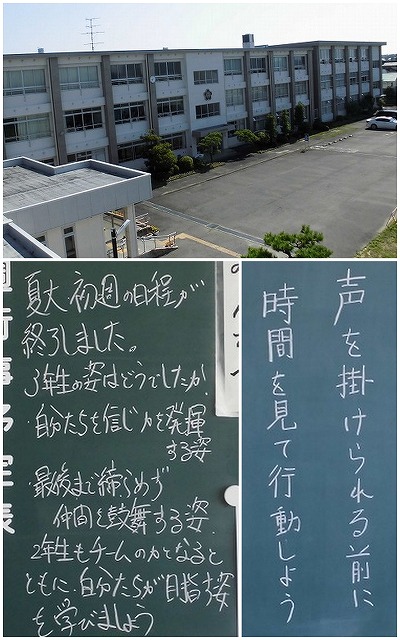 夏大 初週の日程が
終了しました。
3年生の姿はどうでしたか。
・自分たちを信じ力を発揮
する姿
・最後まで締らめず
仲間を鼓舞する姿
2年生もチームの力となると
ともに、自分たちが目指す姿
を学びましょう
声を掛けられる前に
時間を見て行動しよう